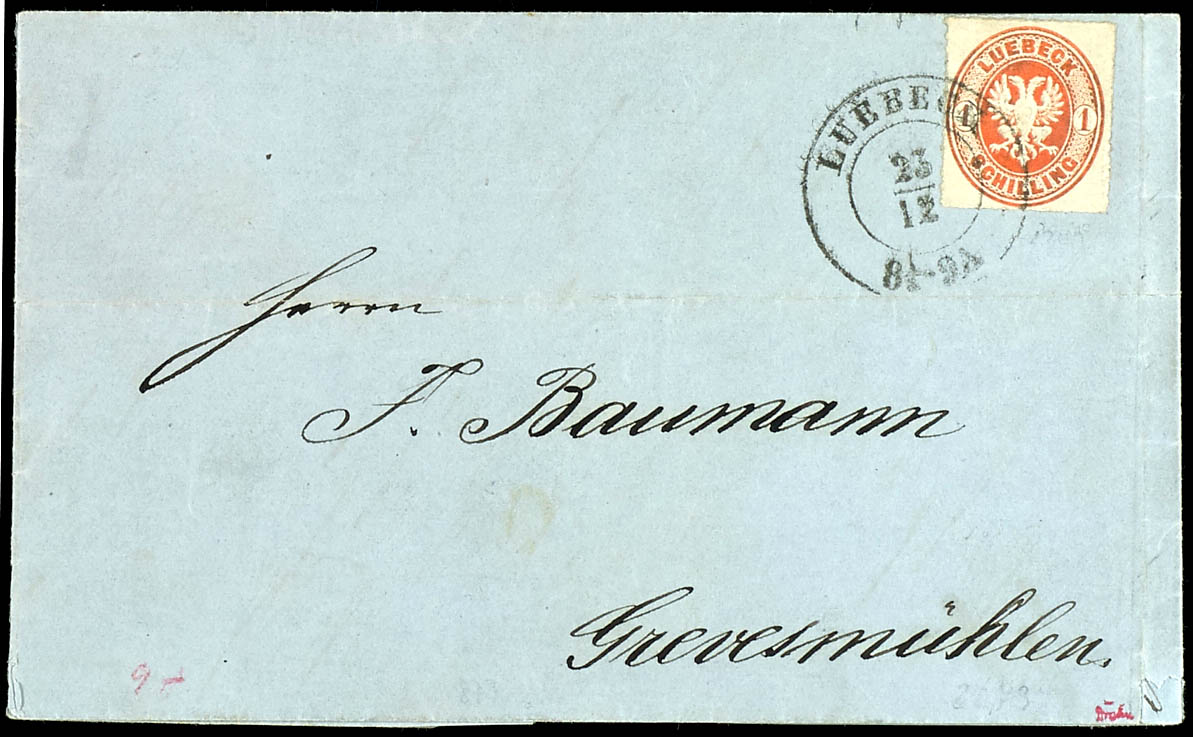 LUEBECK
1 1
SCHILLING
LUEBECK
23
12
8½-9A
Herrn
F. Baumann
Grevesmühlen.
9